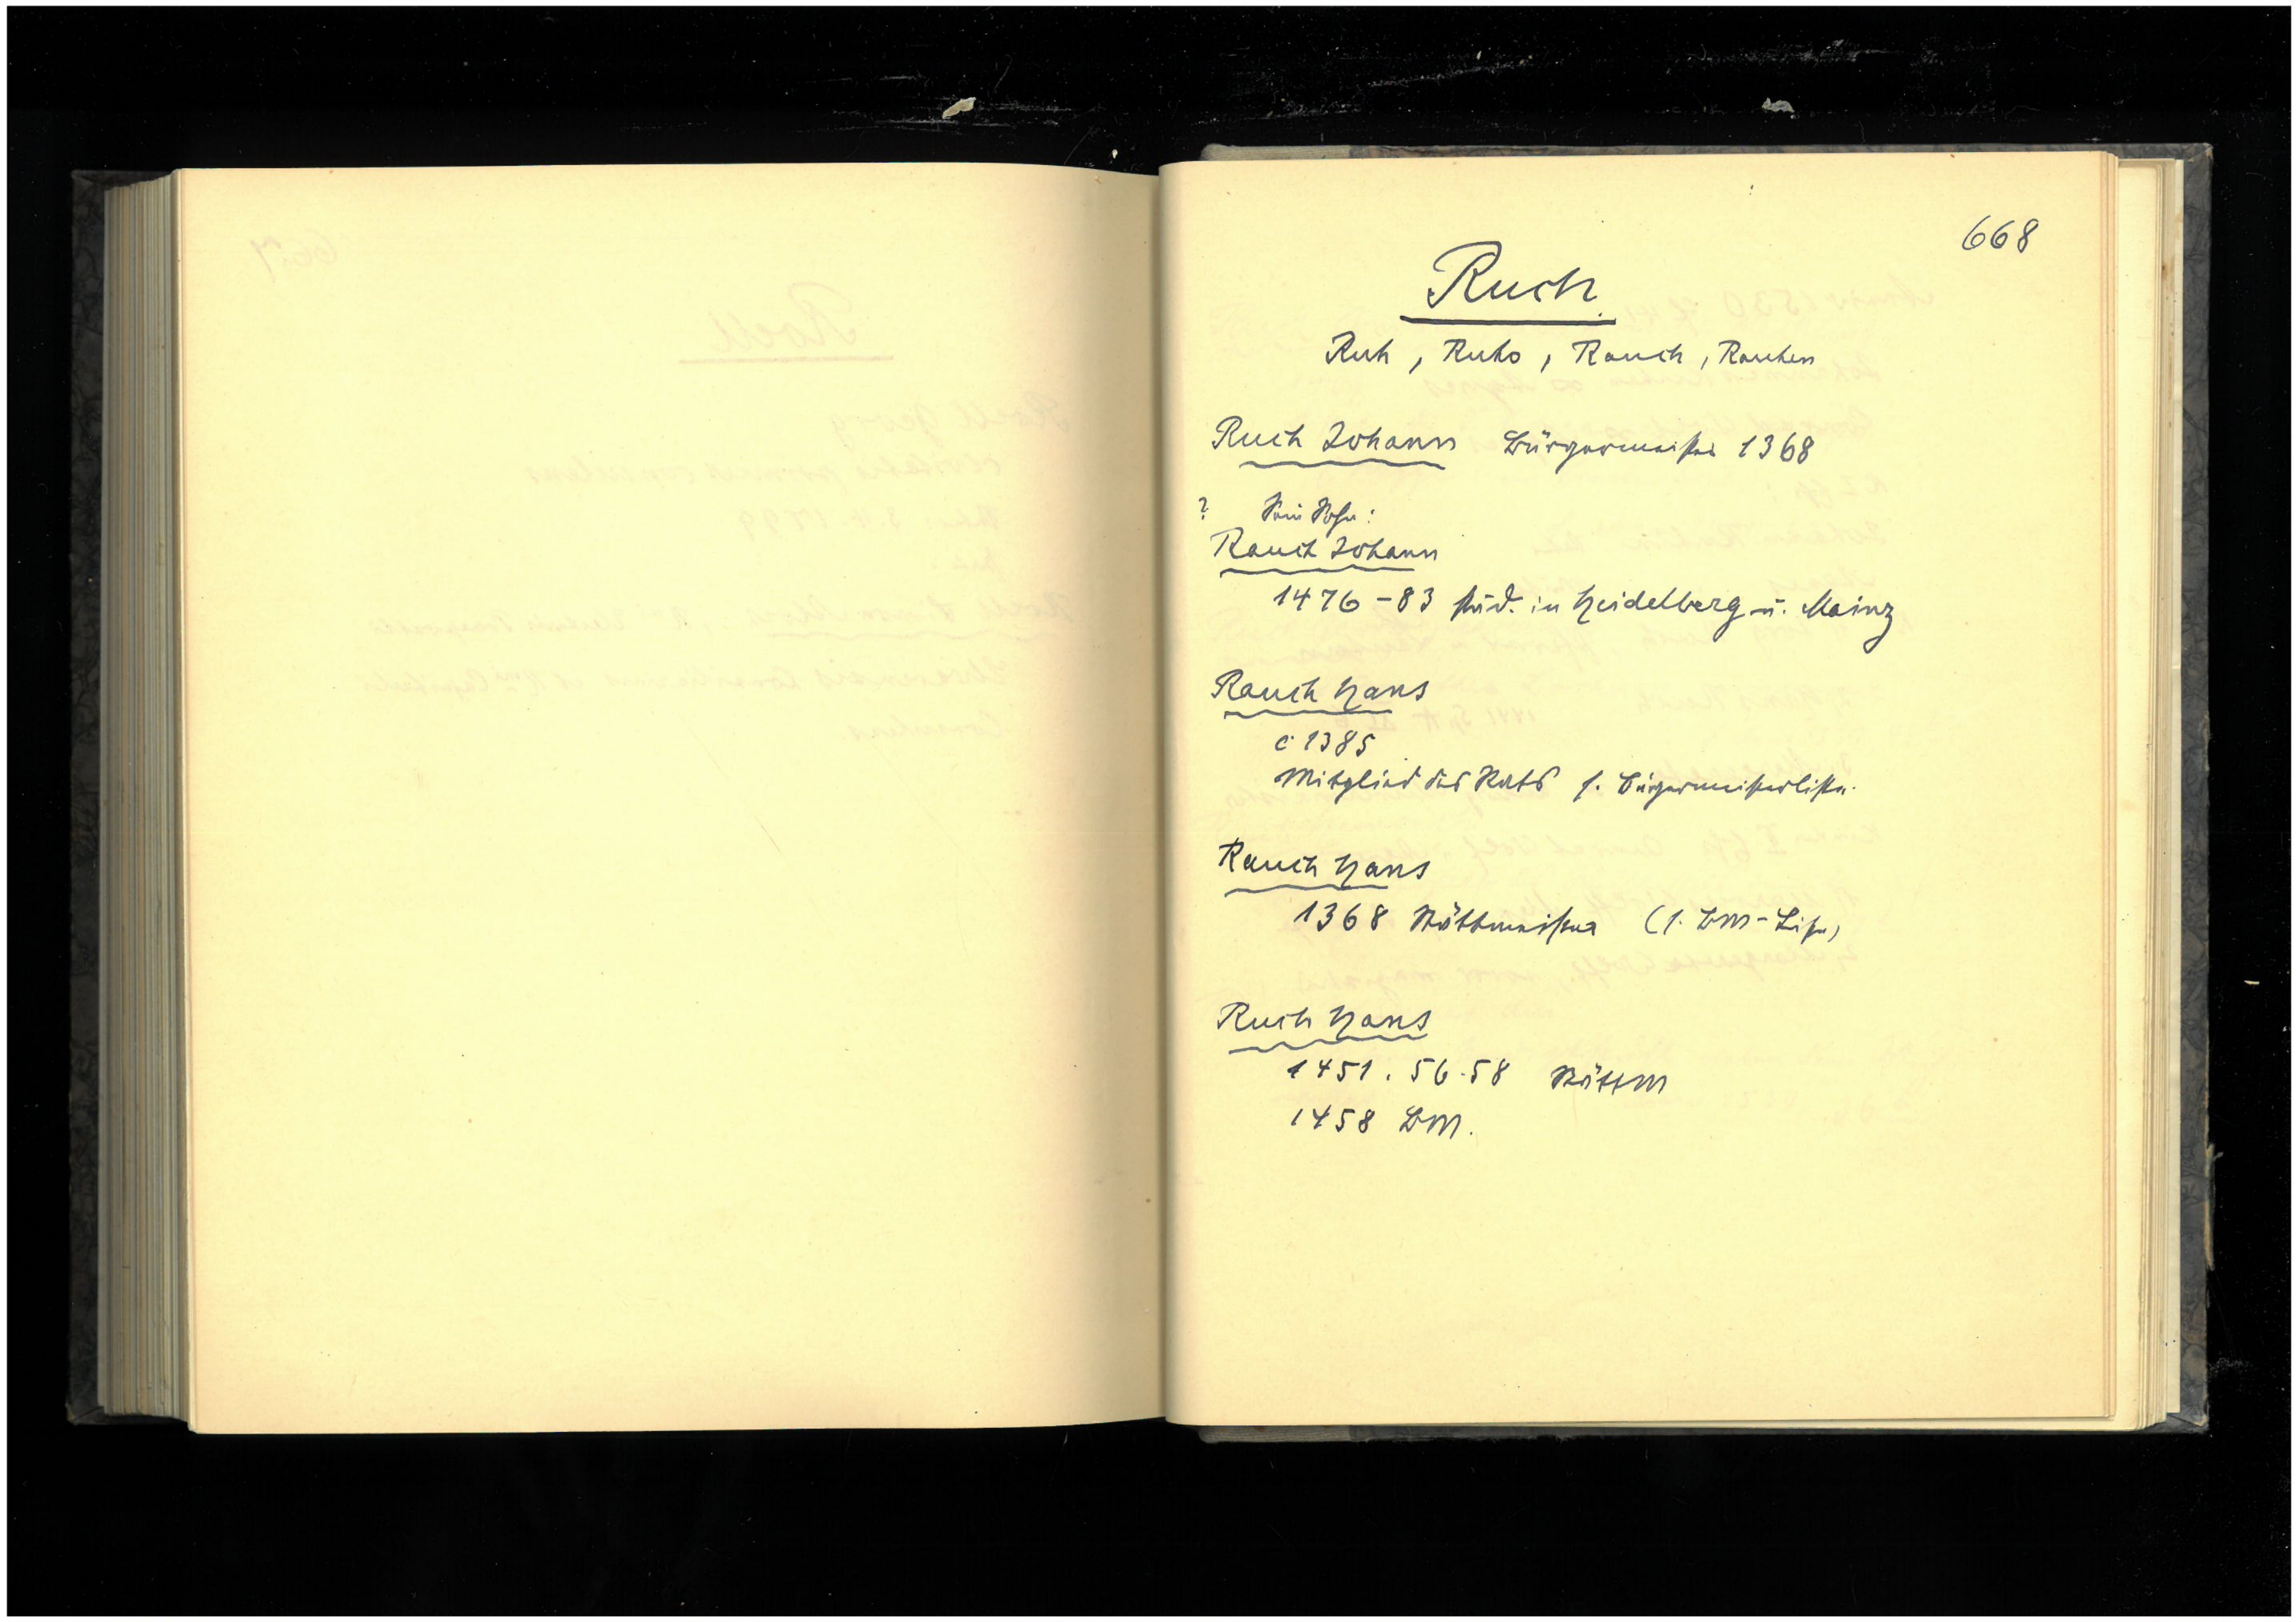 668
Ruch
Ruh, Ruho, Rauch, Rauhen
Ruch Johann Bürgermeister 1368
? Sein Sohn:
Rauch Johann
1476-83 stud. in Heidelberg u. Mainz
Rauch Hans
c 1385
Mitglied des Rats s. Bürgermeisterliste.
Rauch Hans
1368 Stättmeister (s. BM-Liste)
Ruch Hans
1451. 56.58 StättM
1458 BM.